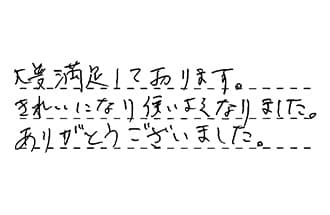 大変満足しております。
きれいになり使いよくなりました。
ありがとうございました。